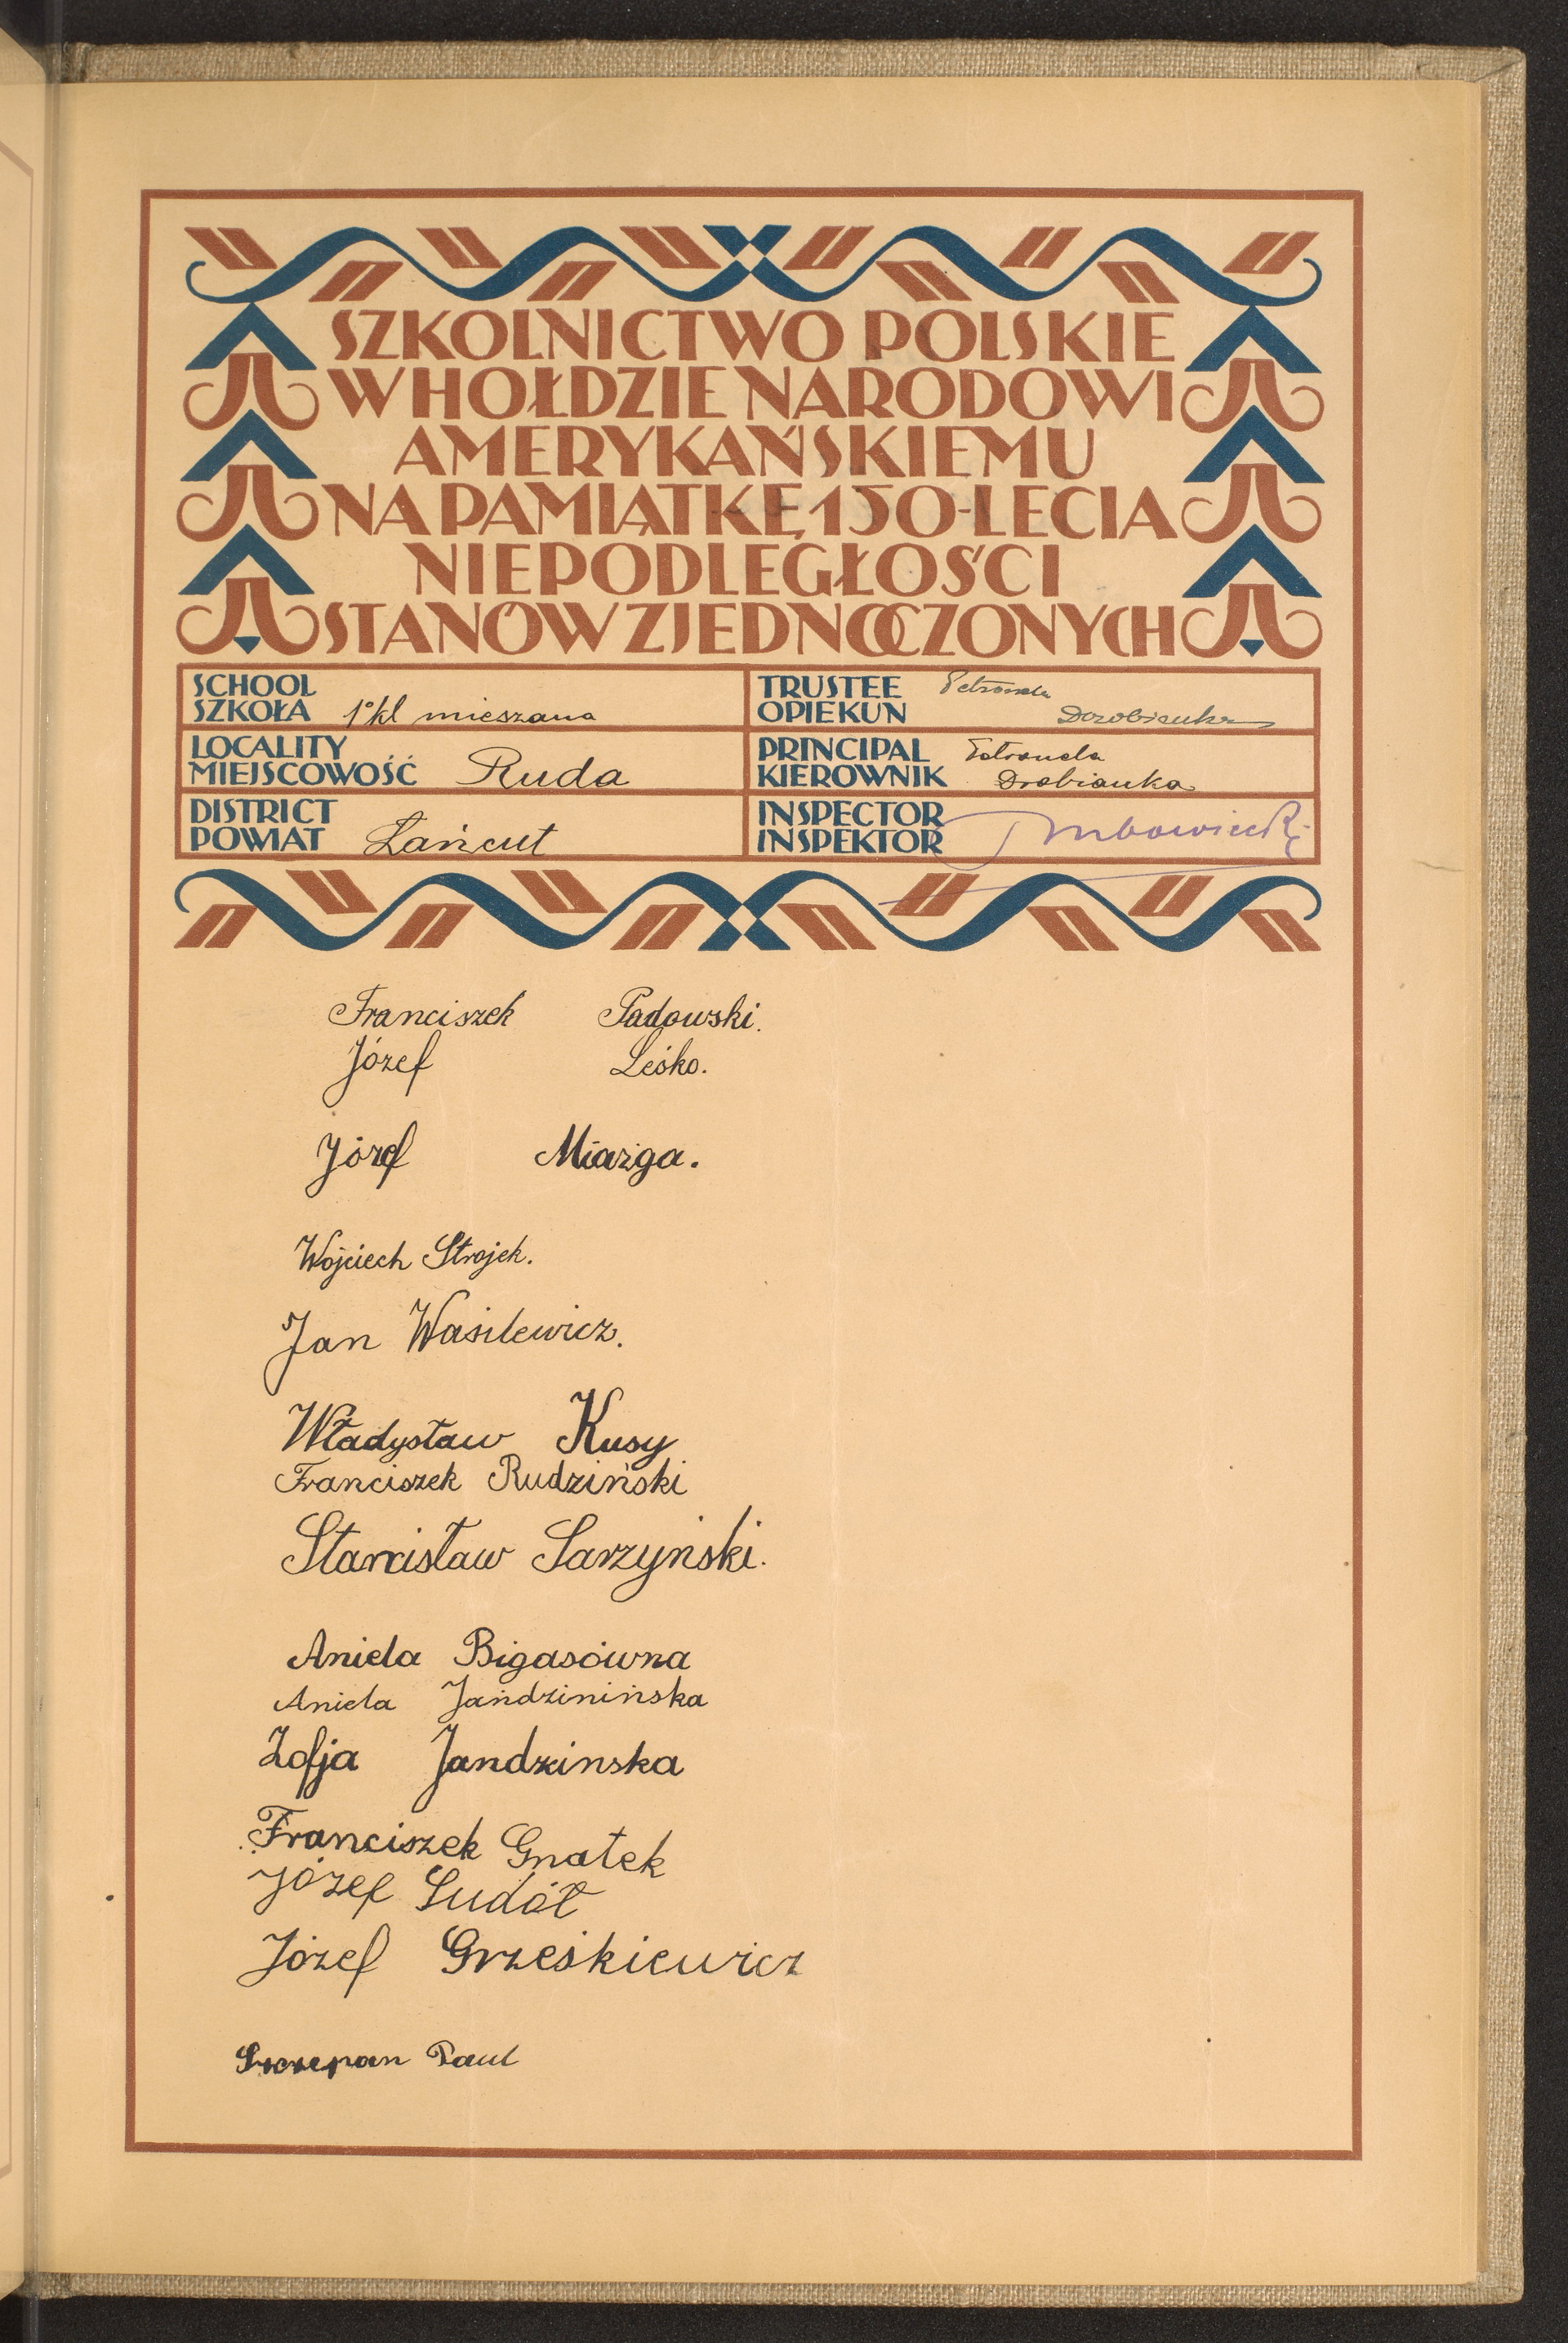 SZKOLNICTWO POLSKIE
W HOŁDZIE NARODOWI
AMERYKAŃSKIEMU
NA PAMIĄTKĘ 150-LECIA
NIEPODLEGŁOŚCI
STANÓW ZJEDNOCZONYCH
SCHOOL
SZKOŁA 1° kl mieszana
TRUSTEE Petronela
OPIEKUN
LOCALITY
MIEJSCOWOŚĆ Ruda
PRINCIPAL Petronela
KIEROWNIK Drobianka
DISTRICT
POWIAT Łańcut
INSPECTOR
INSPEKTOR
Franciszek Padowski.
Józef Leśko.
Józef Miazga.
Wojciech Strojek.
Jan Wasilewicz.
Władysław Kusy
Franciszek Rudziński
Stanisław Sarzyński.
Aniela Bigasówna
Aniela Jandzinińska
Zofja Jandzinska
Franciszek Gnatek
Józef Sudół
Józef Grześkiewicz
Szczepan Paul